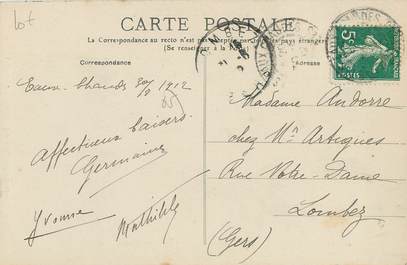 Lot
CARTE POSTALE
La Correspondance au recto n'est pas acceptée par tous pays étrangers
(Se renseigner à la Poste)
Correspondance
Adresse
5c
POSTES
Eaux-Chaudes 30/8 1912
Affectueux baisers
Germaine
Yvonne
Mathilde
Madame Andorre
chez Mr Artigues
Rue Notre-Dame
Lombez
(Gers)